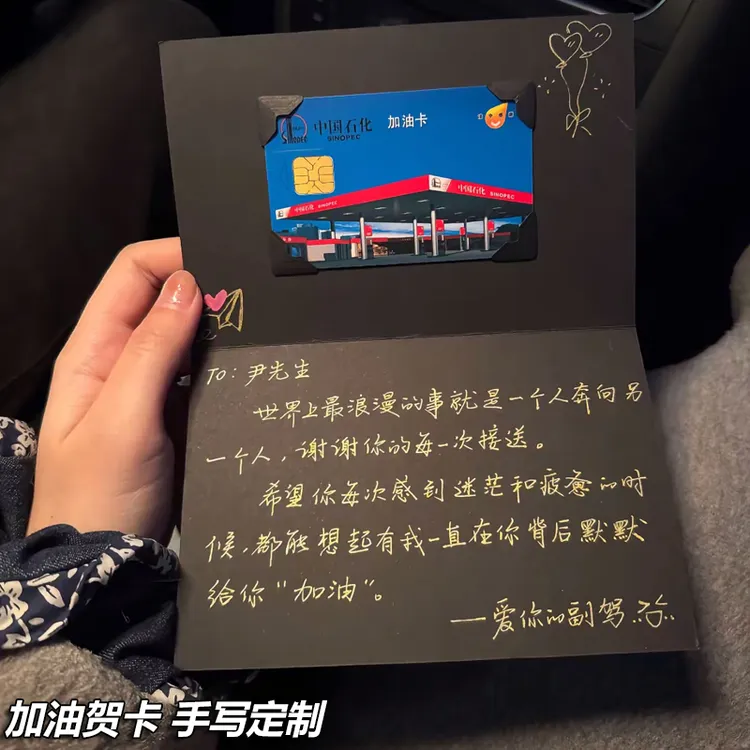 中国石化 加油卡
SINOPEC
中国石化 SINOPEC
中国石化 SINOPEC
TO: 尹先生
世界上最浪漫的事就是一个人奔向另
一个人，谢谢你的每一次接送。
希望你每次感到迷茫和疲惫的时
候，都能想起有我一直在你背后默默
给你“加油”。
—爱你的副驾
加油贺卡 手写定制